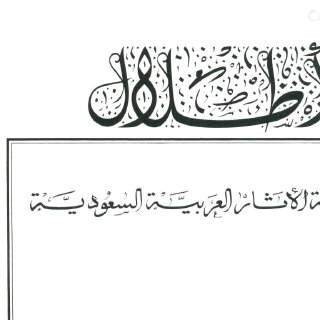 أطلال
الآثار العربية السعودية